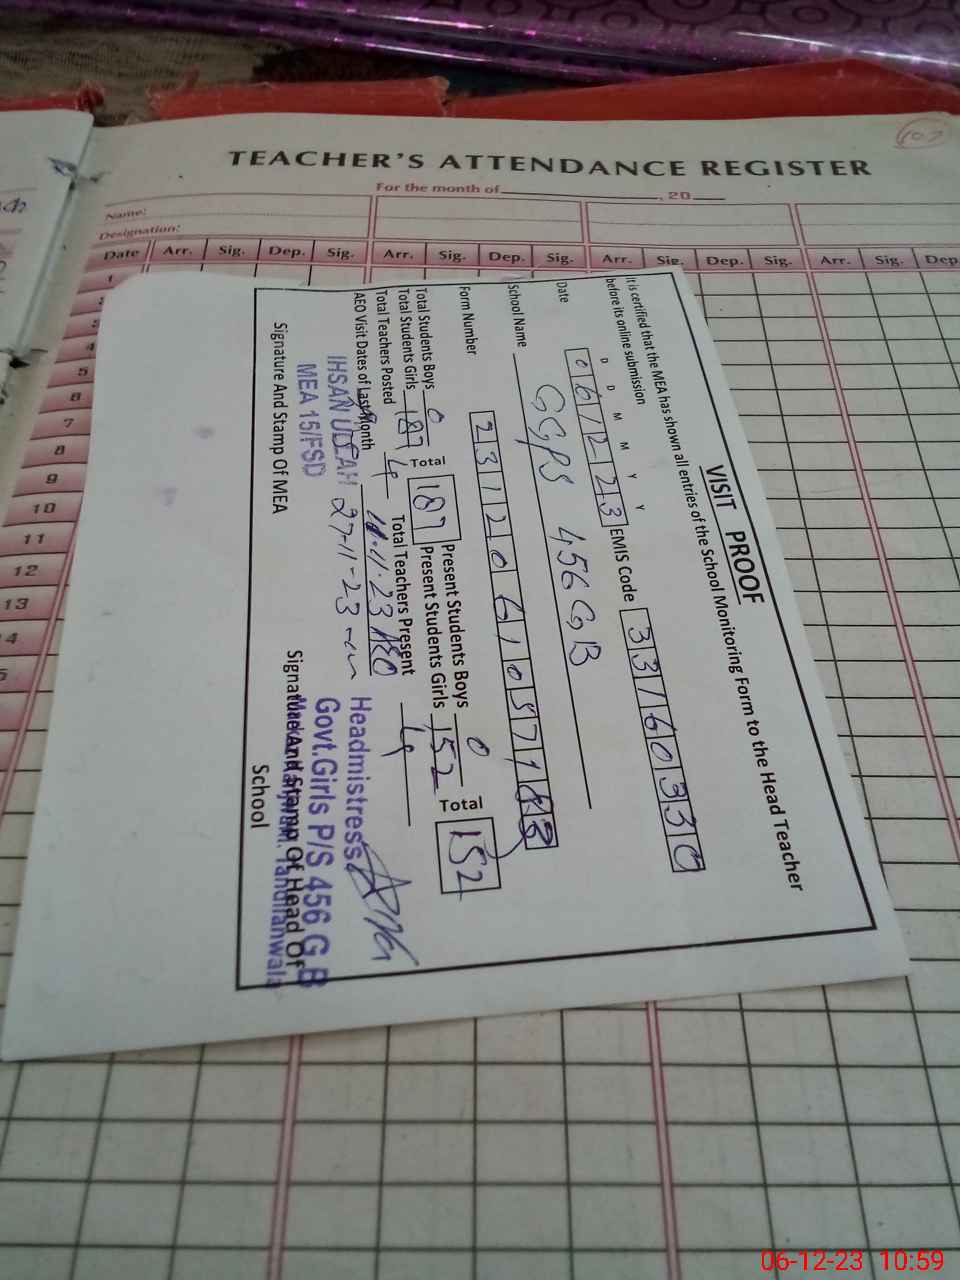 107
TEACHER'S ATTENDANCE REGISTER
For the month of , 20
Name:
Designation:
Date Arr. Sig. Dep. Sig. Arr. Sig. Dep. Sig. Arr. Sig. Dep. Sig. Arr. Sig. Dep.
1
4
5
6
7
8
9
10
11
12
13
VISIT PROOF
It is certified that the MEA has shown all entries of the School Monitoring Form to the Head Teacher
before its online submission
D D M M Y Y
Date 061223 EMIS Code 33160330
School Name GGPS 456 GB
Form Number
Total Students Boys 0 Present Students Boys 0
Total Students Girls 187 Total 187 Present Students Girls 152 Total 152
Total Teachers Posted 4 Total Teachers Present 4
AEO Visit Dates of Last Month 11.11.23 AEO
27-11-23
IHSAN ULLAH
MEA 15/FSD
Headmistress
Govt.Girls P/S 456 G B
Tandlianwala
Signature And Stamp Of MEA
Signature And Stamp Of Head Of
School
06-12-23 10:59